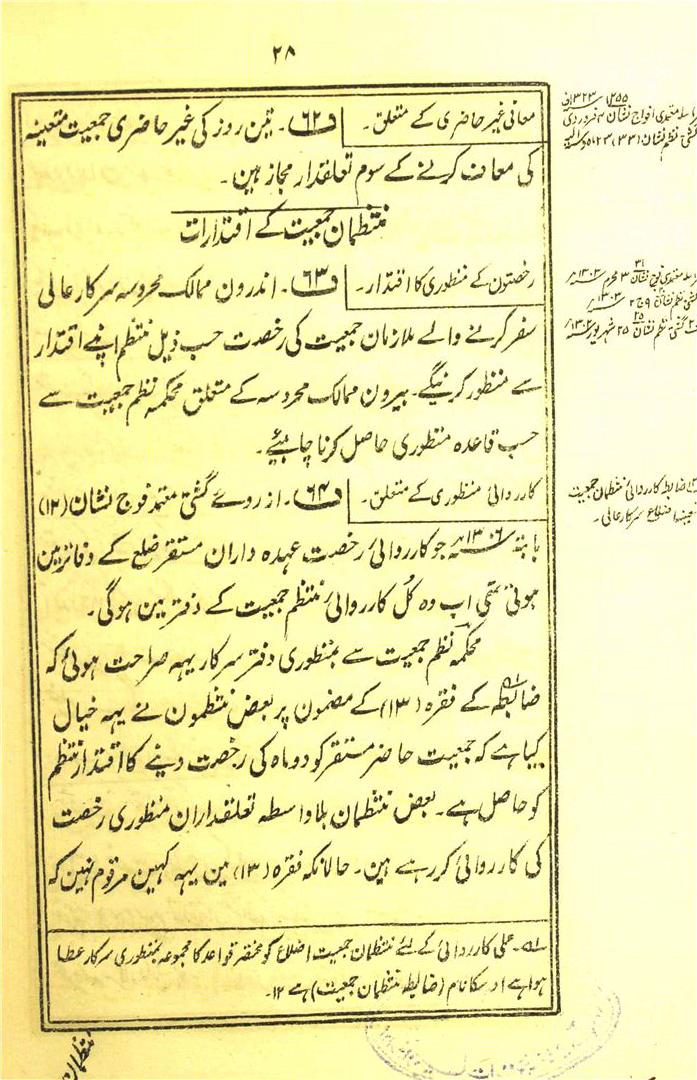 ۲۸
معافی غیر حاضری کے متعلق۔ ف(۶۲)۔ تین روز کی غیر حاضری جمعیت متعینہ
کی معاف کرنے کے سوم تعلقدار مجاز ہین۔
منتظمان جمعیت کے اقتدارات
رخصتون کے منظوری کا اقتدار۔ ف(۶۳)۔ اندرون ممالک محروسہ سرکار عالی
سفر کرنے والے ملازمان جمعیت کی رخصت حسب ذیل منتظم اپنے اقتدار
سے منظور کرینگے۔ بیرون ممالک محروسہ کے متعلق محکمہ نظم جمعیت سے
حسب قاعدہ منظوری حاصل کرنا چاہیئے۔
کارروائی منظوری کے متعلق۔ ف(۶۴)۔ ازروے گشتی معتمد فوج نشان (۱۲)
بابتہ ۱۳۰۶ جو کارروائی رخصت عہدہ داران مستقر ضلع کے دفاتر مین
ہوتی تھی اب وہ کُل کارروائی منتظم جمعیت کے دفتر مین ہوگی۔
محکمہ نظم جمعیت سے بمنظوری دفتر سرکار یہہ صراحت ہوئی کہ
ضابطہ کے فقرہ (۱۳) کے مضمون پر بعض منتظمون نے یہہ خیال
کیا ہے کہ جمعیت حاضر مستقر کو دو ماہ کی رخصت دینے کا اقتدار منتظم
کو حاصل ہے۔ بعض منتظمان بلا واسطہ تعلقداران منظوری رخصت
کی کارروائی کر رہے ہین۔ حالانکہ فقرہ (۱۳) مین یہہ کہین مرقوم نہین کہ
عملی کارروائی کے لئے منتظمان جمعیت اضلاع کو مختصر قواعد کا مجموعہ بمنظوری سرکار عطا
ہوا ہے اوسکا نام (ضابطہ منتظمان جمعیت) ہے ۱۲۔
ضابطہ کارروائی منتظمان جمعیت
اضلاع سرکار عالی۔
منتظمان